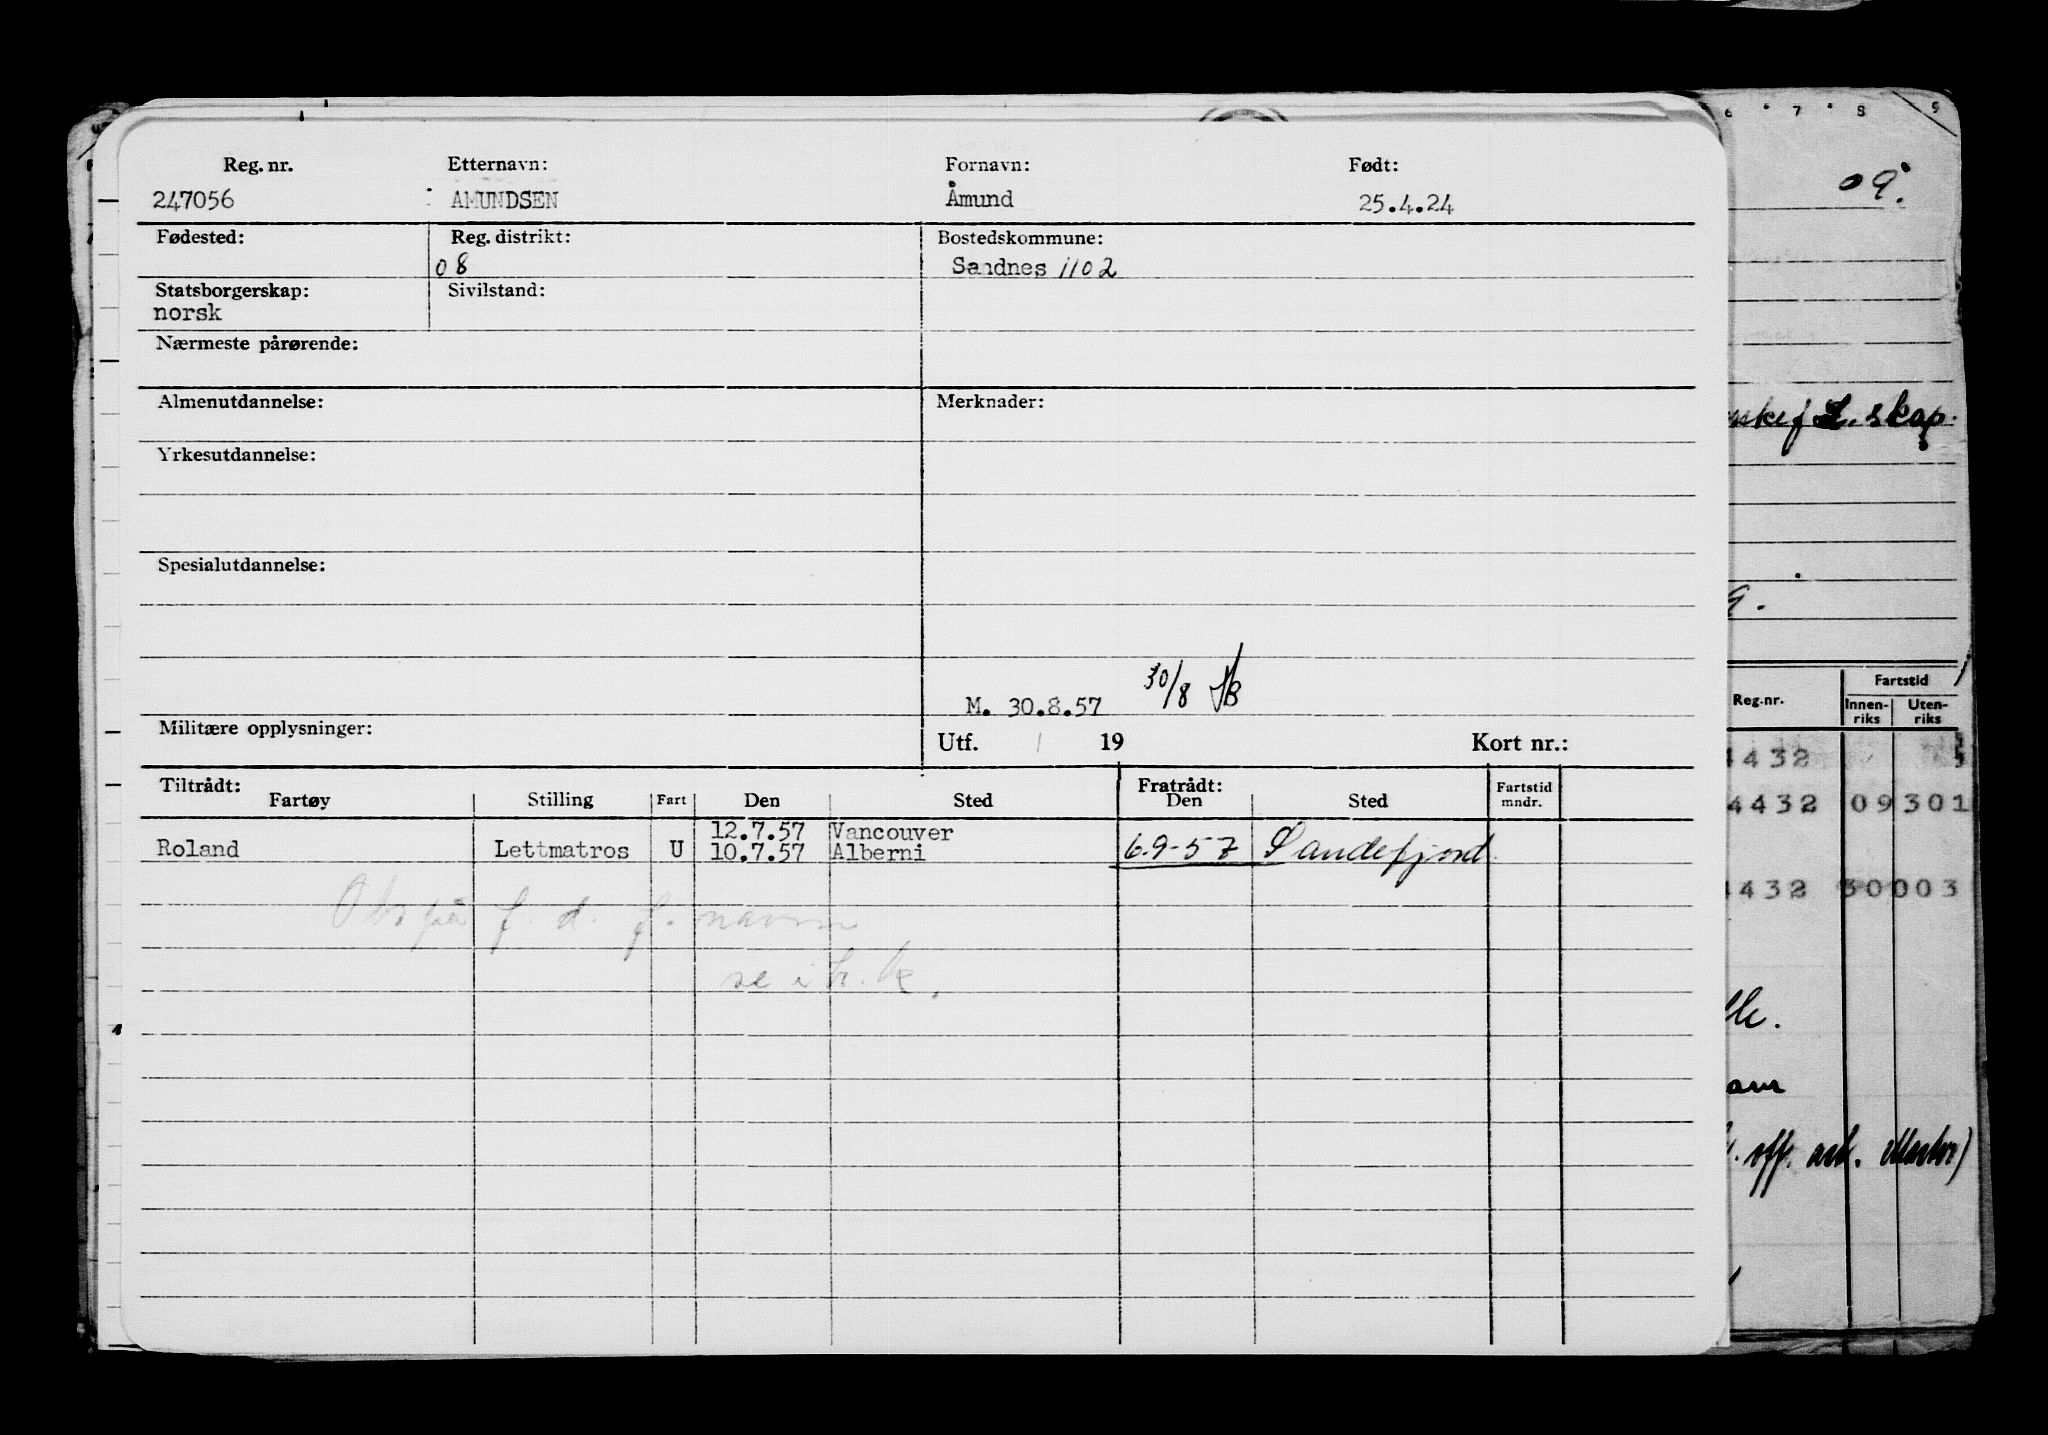 Reg. nr. Etternavn: Fornavn: Født:
247056 AMUNDSEN Åmund 25.4.24
Fødested: Reg. distrikt: Bostedskommune:
08 Sandnes 1102
Statsborgerskap: Sivilstand:
norsk
Nærmeste pårørende:
Almenutdannelse: Merknader:
Yrkesutdannelse:
Spesialutdannelse:
M. 30.8.57 30/8
Militære opplysninger: Utf. 19 Kort nr.:
Tiltrådt: Fratrådt:
Fartøy Stilling Fart Den Sted Den Sted Fartstid mndr.
12.7.57 Vancouver
Roland Lettmatros U 10.7.57 Alberni 6.9-57 Sandefjord
Obs på f. d. f. navn
se i h. k.
6 7 8 9
09.
skap.
9.
Reg.nr. Fartstid
Innen-riks Uten-riks
4432
4432 09 301
4432 30003
off. ask. Maskor)